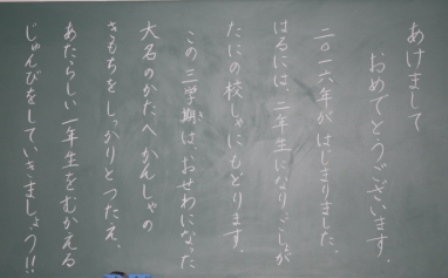 あけまして
おめでとうございます。
二〇一六年がはじまりました。
はるには、二年生になり、ごしょが
たにの校しゃにもどります。
この三学期は、おせわになった
大名のかたへかんしゃの
きもちをしっかりとつたえ、
あたらしい一年生をむかえる
じゅんびをしていきましょう!!